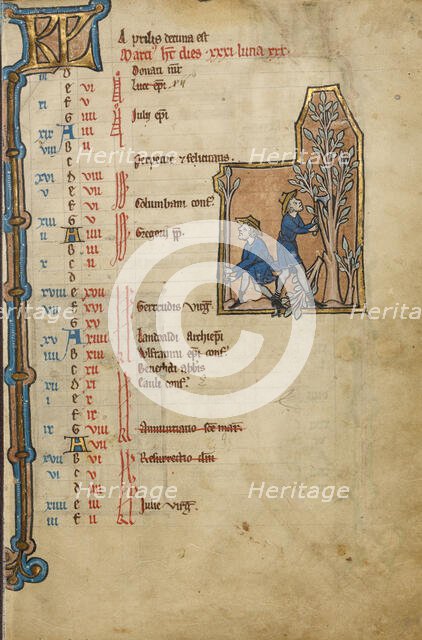 KL Aprilis decima est
Marci' ht dies .xxxi. luna xxx.
d Donati mr
e vi Luce epi
xi f v
g iiii July epi
xix A iii
viii B ii
c Perpetue & felicitatis.
xvi d viii
v e vii
f vi Columbani conf.
xiii g v
ii A iiii Gregorii pp.
B iii
c ii
d
xviii e xvii
vii f xvi Gertrudis virg.
g xv
xv A xiiii Landoaldi archiepi
iiii B xiii Vlfranni epi conf.
c xii Benedicti abbis
xii d xi Pauli conf.
i e x
f ix
ix g viii Annuntiatio sce mar.
A vii
xvii B vi Resurrectio dni
vi c v
d iiii
xiiii e iii Iulie virg.
iii f ii
Heritage Heritage
Heritage Heritage
Heritage Heritage